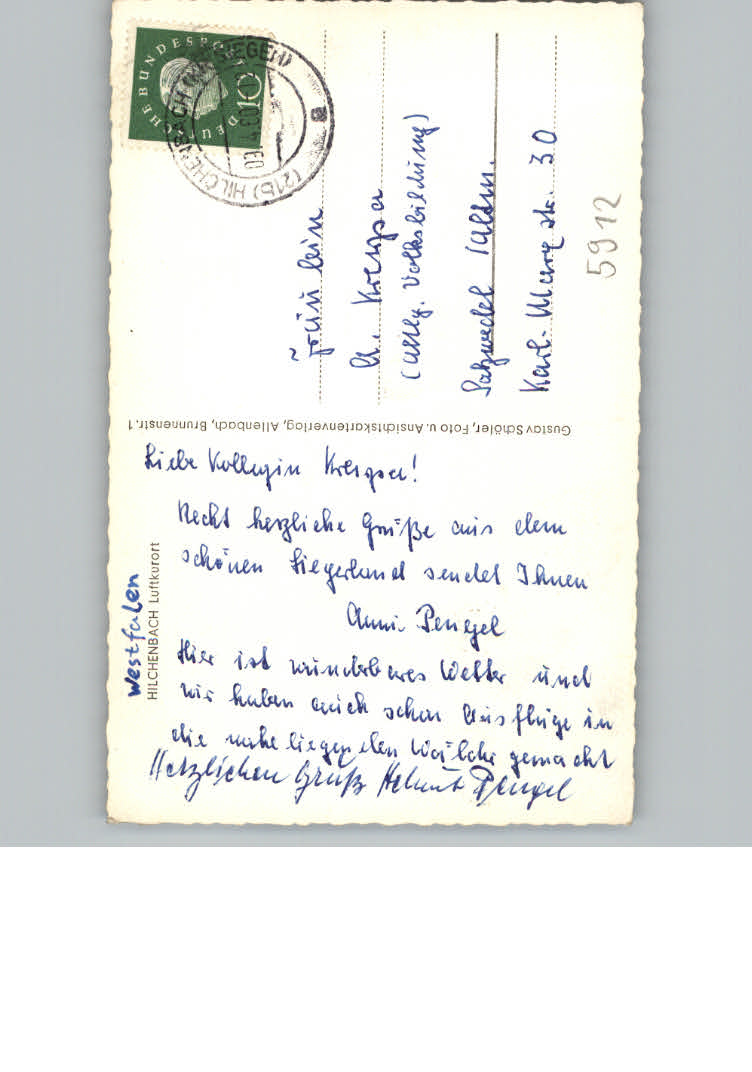 Westfalen
HILCHENBACH Luftkurort
Liebe Kollegin
Recht herzliche Grüße aus dem
schönen Siegerland sendet Ihnen
Anni Pengel
Hier ist wunderbares Wetter und
wir haben auch schon Ausflüge in
die naheliegenden Wälder gemacht
Herzlichen Gruß Helmut Pengel
Gustav Schöler, Foto u. Ansichtskartenverlag, Allenbach, Brunnenstr. 1
DEUTSCHE BUNDESPOST
10
(21b) HILCHENBACH (KR SIEGEN)
Fräulein
A.
(Abtlg. Volksbildung)
Salzwedel (Altm.
Karl-Marx str. 30
5912